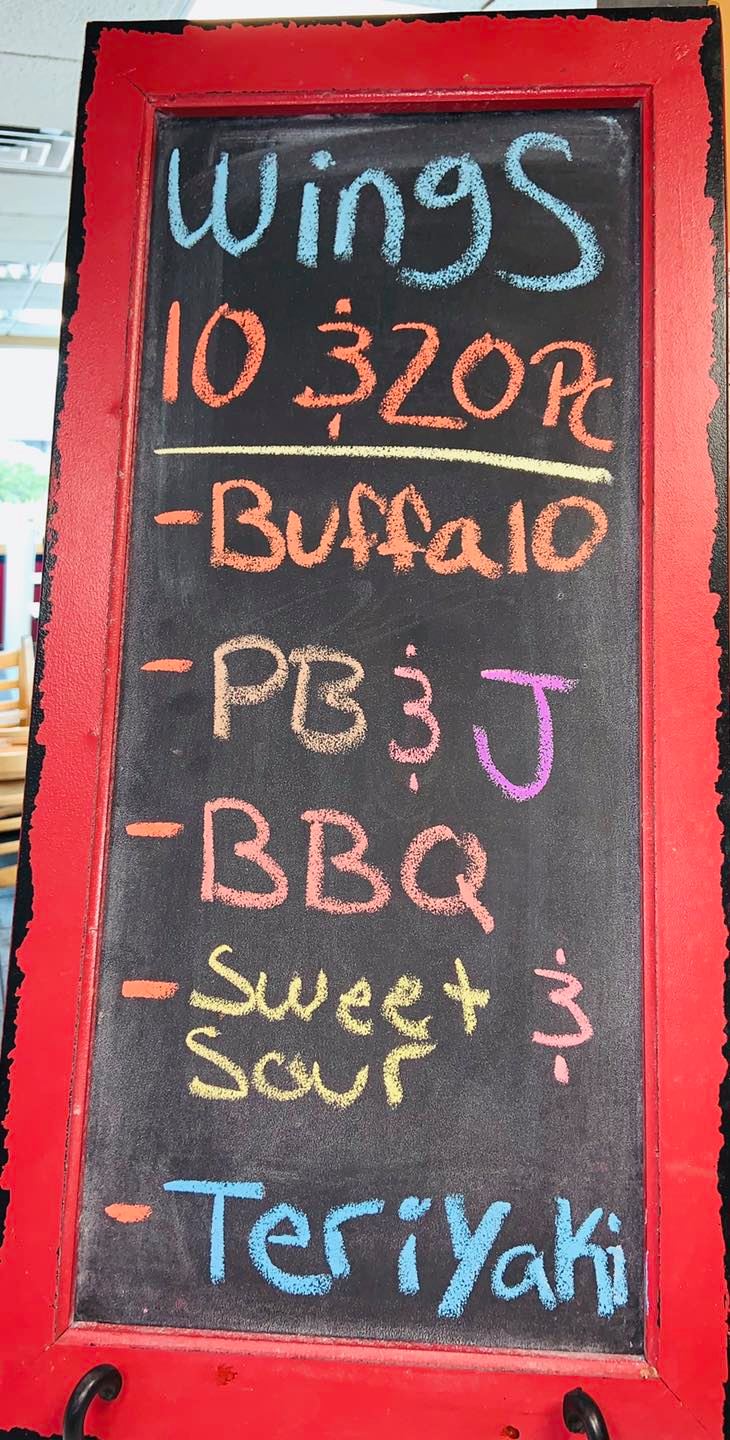 Wings
10 & 20 Pc
- Buffalo
- PB & J
- BBQ
- Sweet &
Sour
- Teriyaki